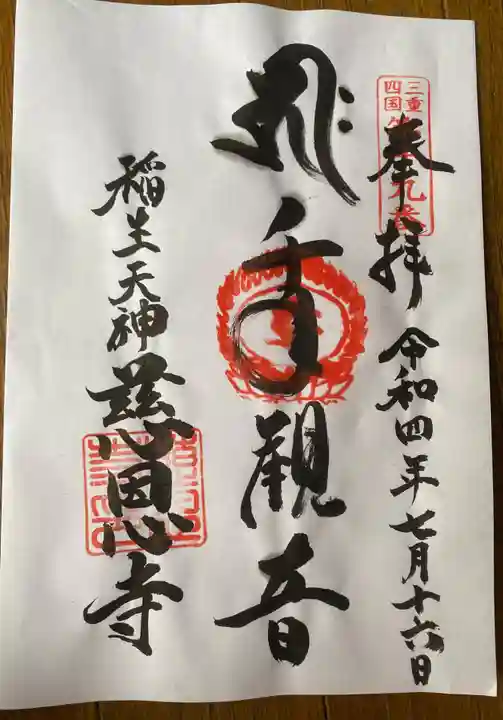 三重
四国
奉拝 令和四年七月十六日
千手観音
稲生天神 慈恩寺